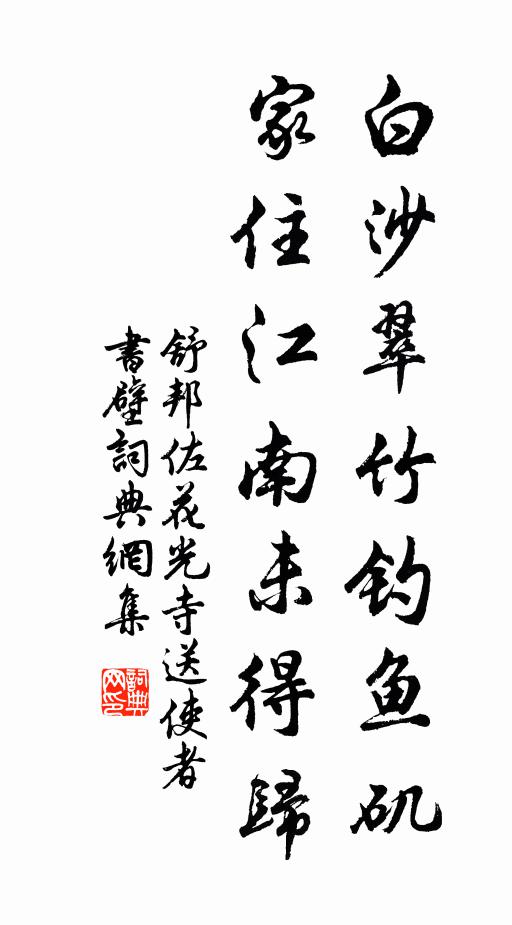 白沙翠竹钓鱼矶
家住江南未得歸
舒邦佐花光寺送使者
書壁詞典網集
詞典网印